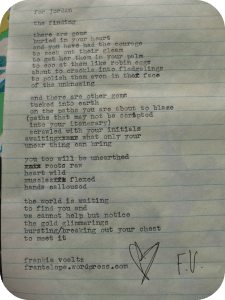 for jordan
the finding
there are gems
buried in your heart
and you have had the courage
to seek out their gleam
to put them in your palm
to coo at them like robin eggs
about to crackle into fledgelings
to polish them even in the face
of the unknowing
and there are other gems
tucked into earth
on the paths you are about to blaze
(paths that may not be scripted
into your itenerary)
enrseled with your initials
awaiting what only your
unear thing can bring
you too will be unearthed
roots raw
heart wild
muscles flexed
hands calloused
the world is waiting
to find you and
we cannot help but notice
the gold glimmerings
bursting/breaking out your chest
to meet it
frankie voelts
frantelope.wordpress.com
F.V.